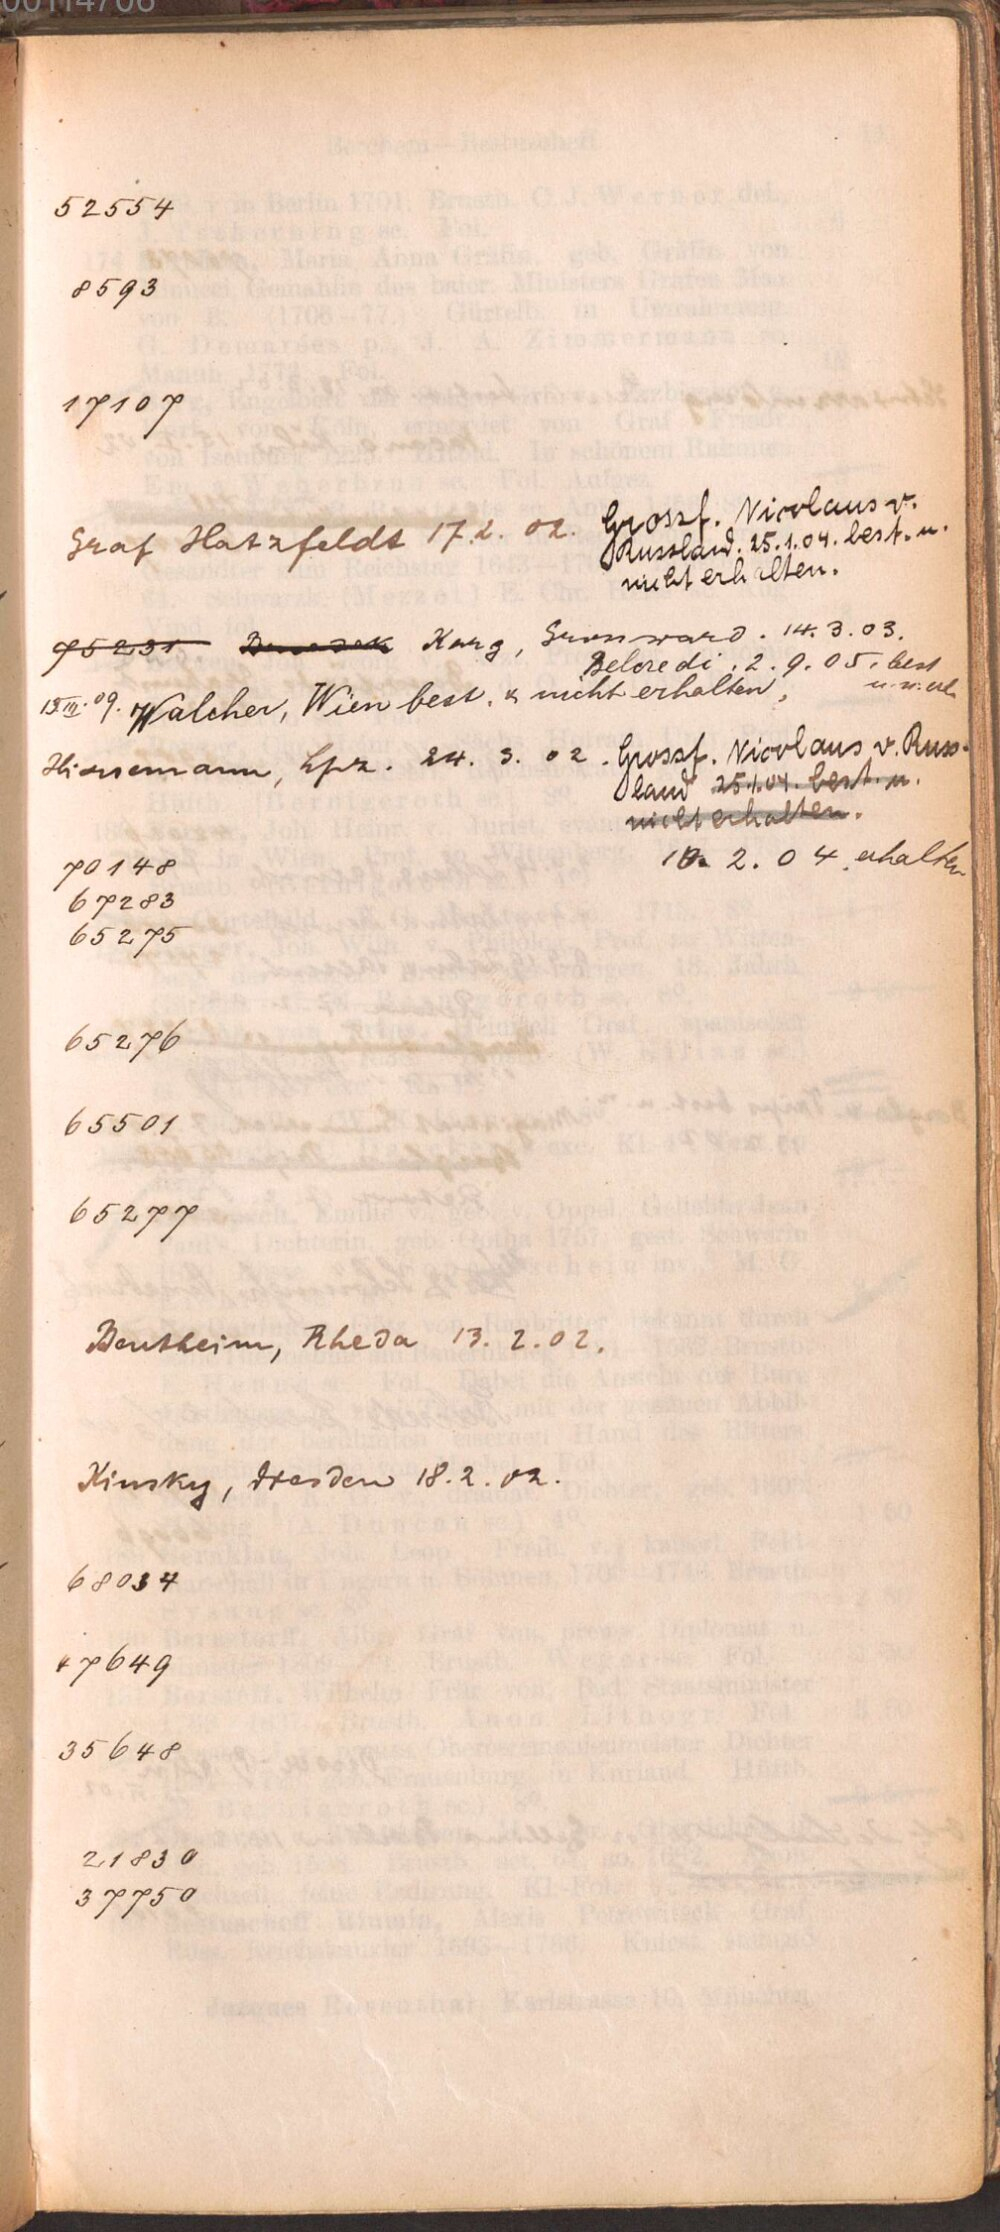 00114706
52554
8593
17107
Graf Hatzfeldt 17.2.02. Grossf. Nicolaus v.
Russland. 25.1.04. best. u.
nicht erhalten.
75231 Karg, Grunward. 14.3.03.
Belcredi. 2.9.05. best
u. n. erh
15.III.09. Walcher, Wien best. & nicht erhalten,
Hiersemann, Lpz. 24.3.02. Grossf. Nicolaus v. Russ-
land 25.1.04. best. u.
nicht erhalten.
10.2.04 erhalten
70148
67283
65275
65276
65501
65277
Bentheim, Rheda 13.2.02.
Kinsky, Dresden 18.2.02.
68034
47649
35648
21830
37750